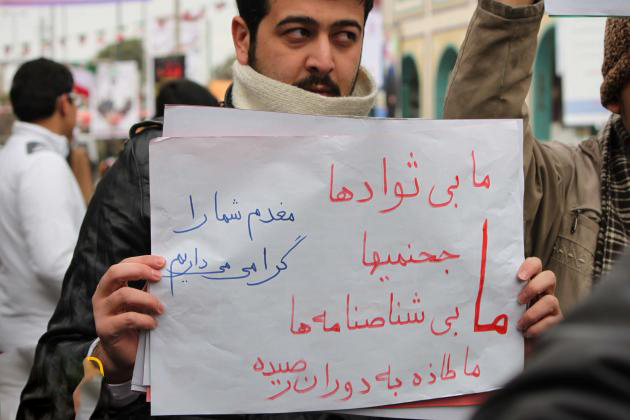 ما بی ثوادها
ما جحنمیها
بی شناصنامه ها
ما طاذه به دوران رصیده
مغدم شما را
گرامی می داریم